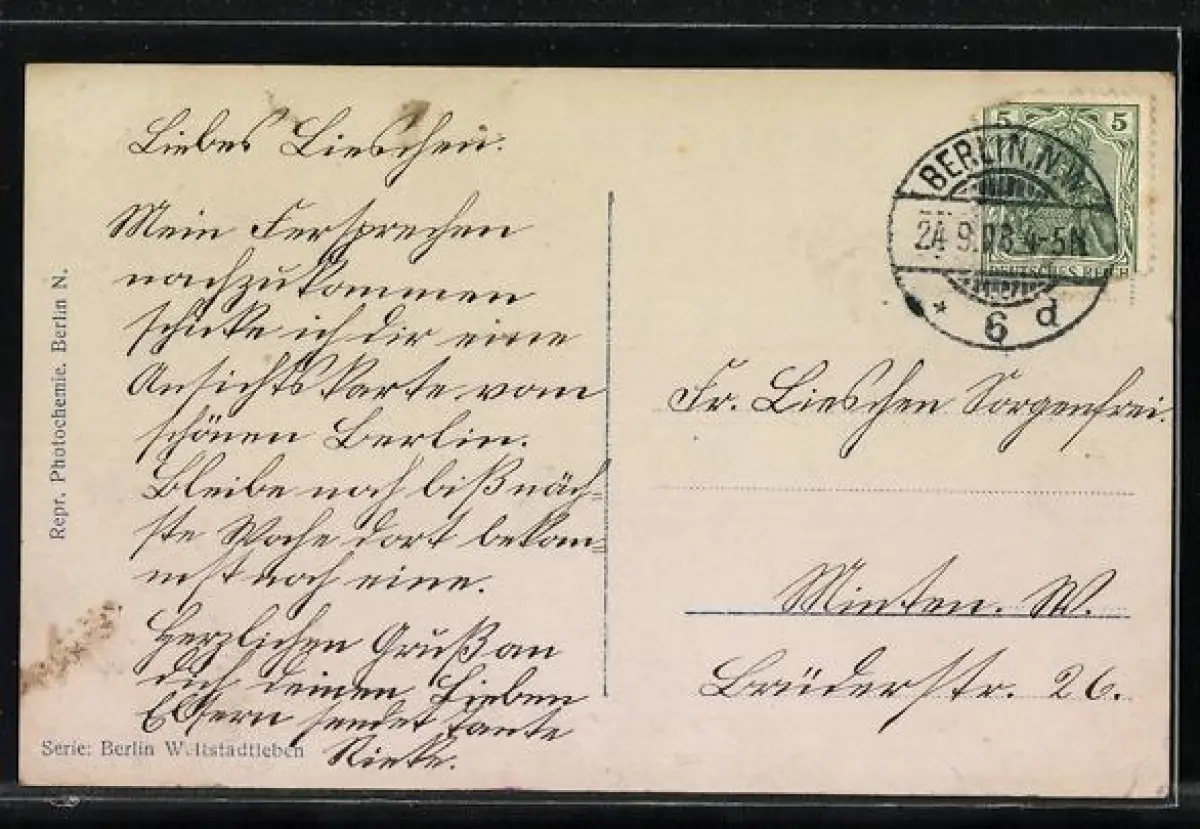 Liebes Lieschen.
Mein Fersprechen
nachzukommen
schicke ich dir eine
Ansichtskarte vom
schönen Berlin.
Bleibe noch biß näch-
ste Woche dort bekom=
mst noch eine.
Herzlichen Gruß an
dich deinen Lieben
Eltern sendet tante
Rieke.
Repr. Photochemie. Berlin N.
Serie: Berlin Weltstadtleben
5 5
DEUTSCHES REICH
BERLIN, N.W.
24.9.08 4-5N
* 6 d
Fr. Lieschen Sorgenfrei.
Minten. W.
Brüderstr. 26.